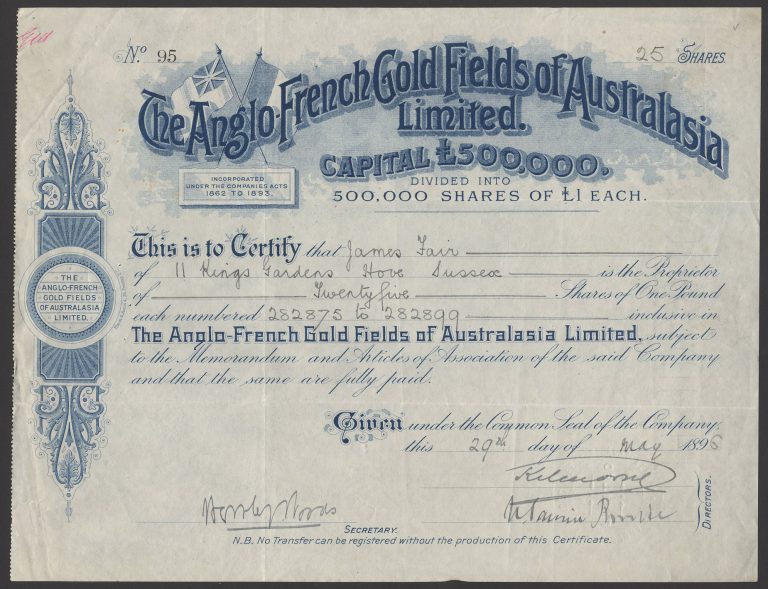 Nº 95
25 SHARES
The Anglo-French Gold Fields of Australasia
Limited.
CAPITAL £500,000.
DIVIDED INTO
500,000 SHARES OF £1 EACH.
INCORPORATED
UNDER THE COMPANIES ACTS
1862 TO 1893.
This is to Certify that James Fair
of 11 Kings Gardens Hove Sussex is the Proprietor
of Twentyfive Shares of One Pound
each numbered 282875 to 282899 inclusive in
The Anglo-French Gold Fields of Australasia Limited, subject
to the Memorandum and Articles of Association of the said Company
and that the same are fully paid.
THE
ANGLO-FRENCH
GOLD FIELDS
OF AUSTRALASIA
LIMITED.
Given under the Common Seal of the Company,
this 29th day of May 1896
DIRECTORS.
Woods
SECRETARY.
N.B. No Transfer can be registered without the production of this Certificate.